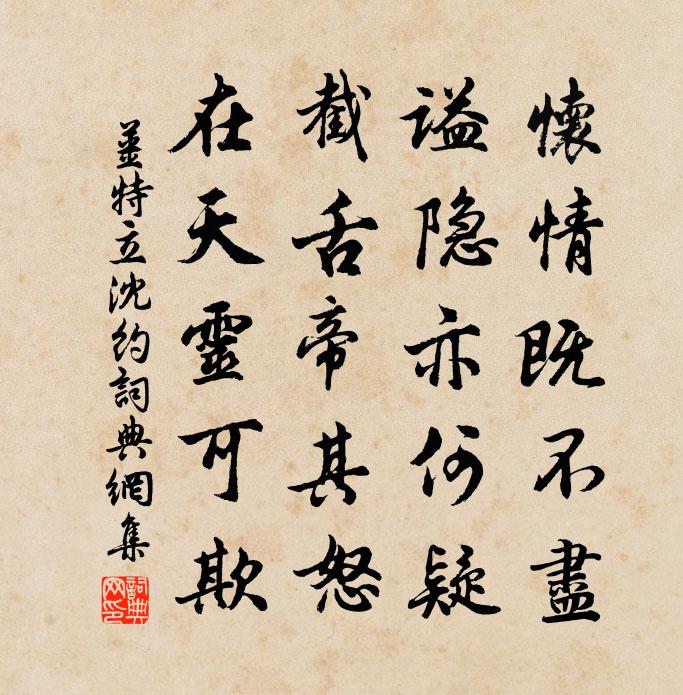 懷情既不盡
謚隐亦何疑
截舌帝其怒
在天靈可欺
薑特立沈約詞典網集
詞典网印